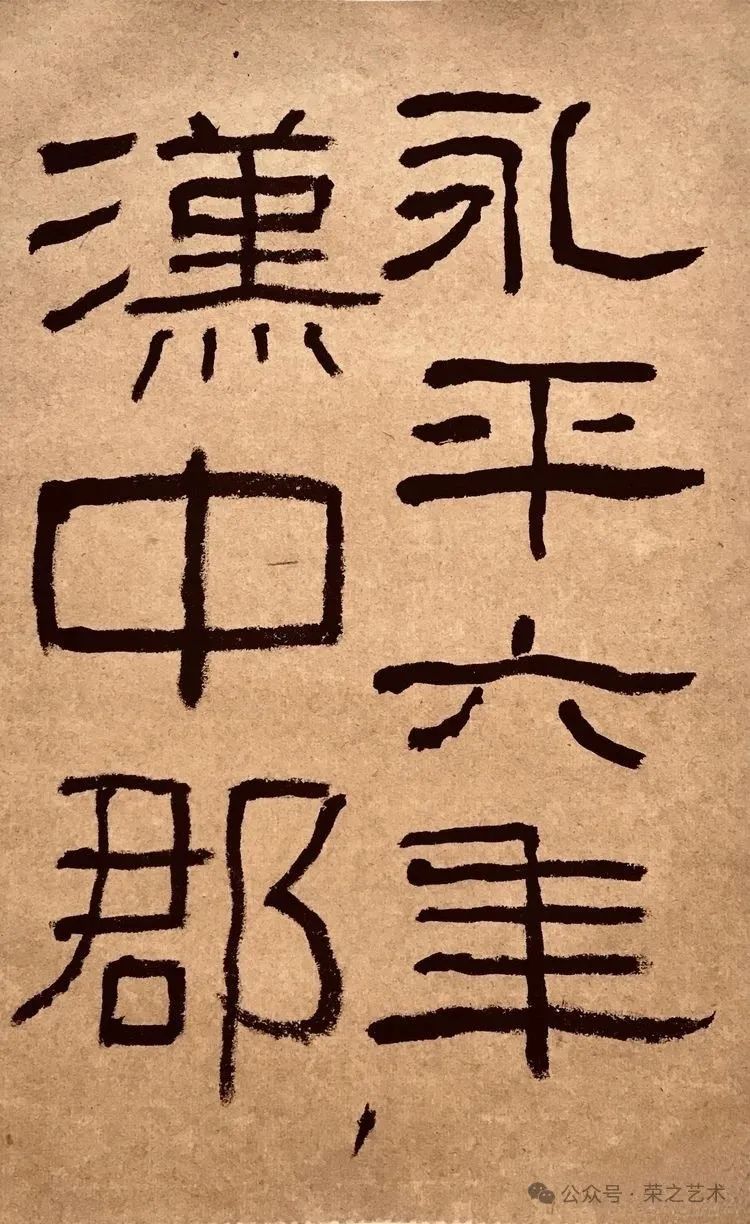 永平六年
漢中郡
公众号·荣之艺术